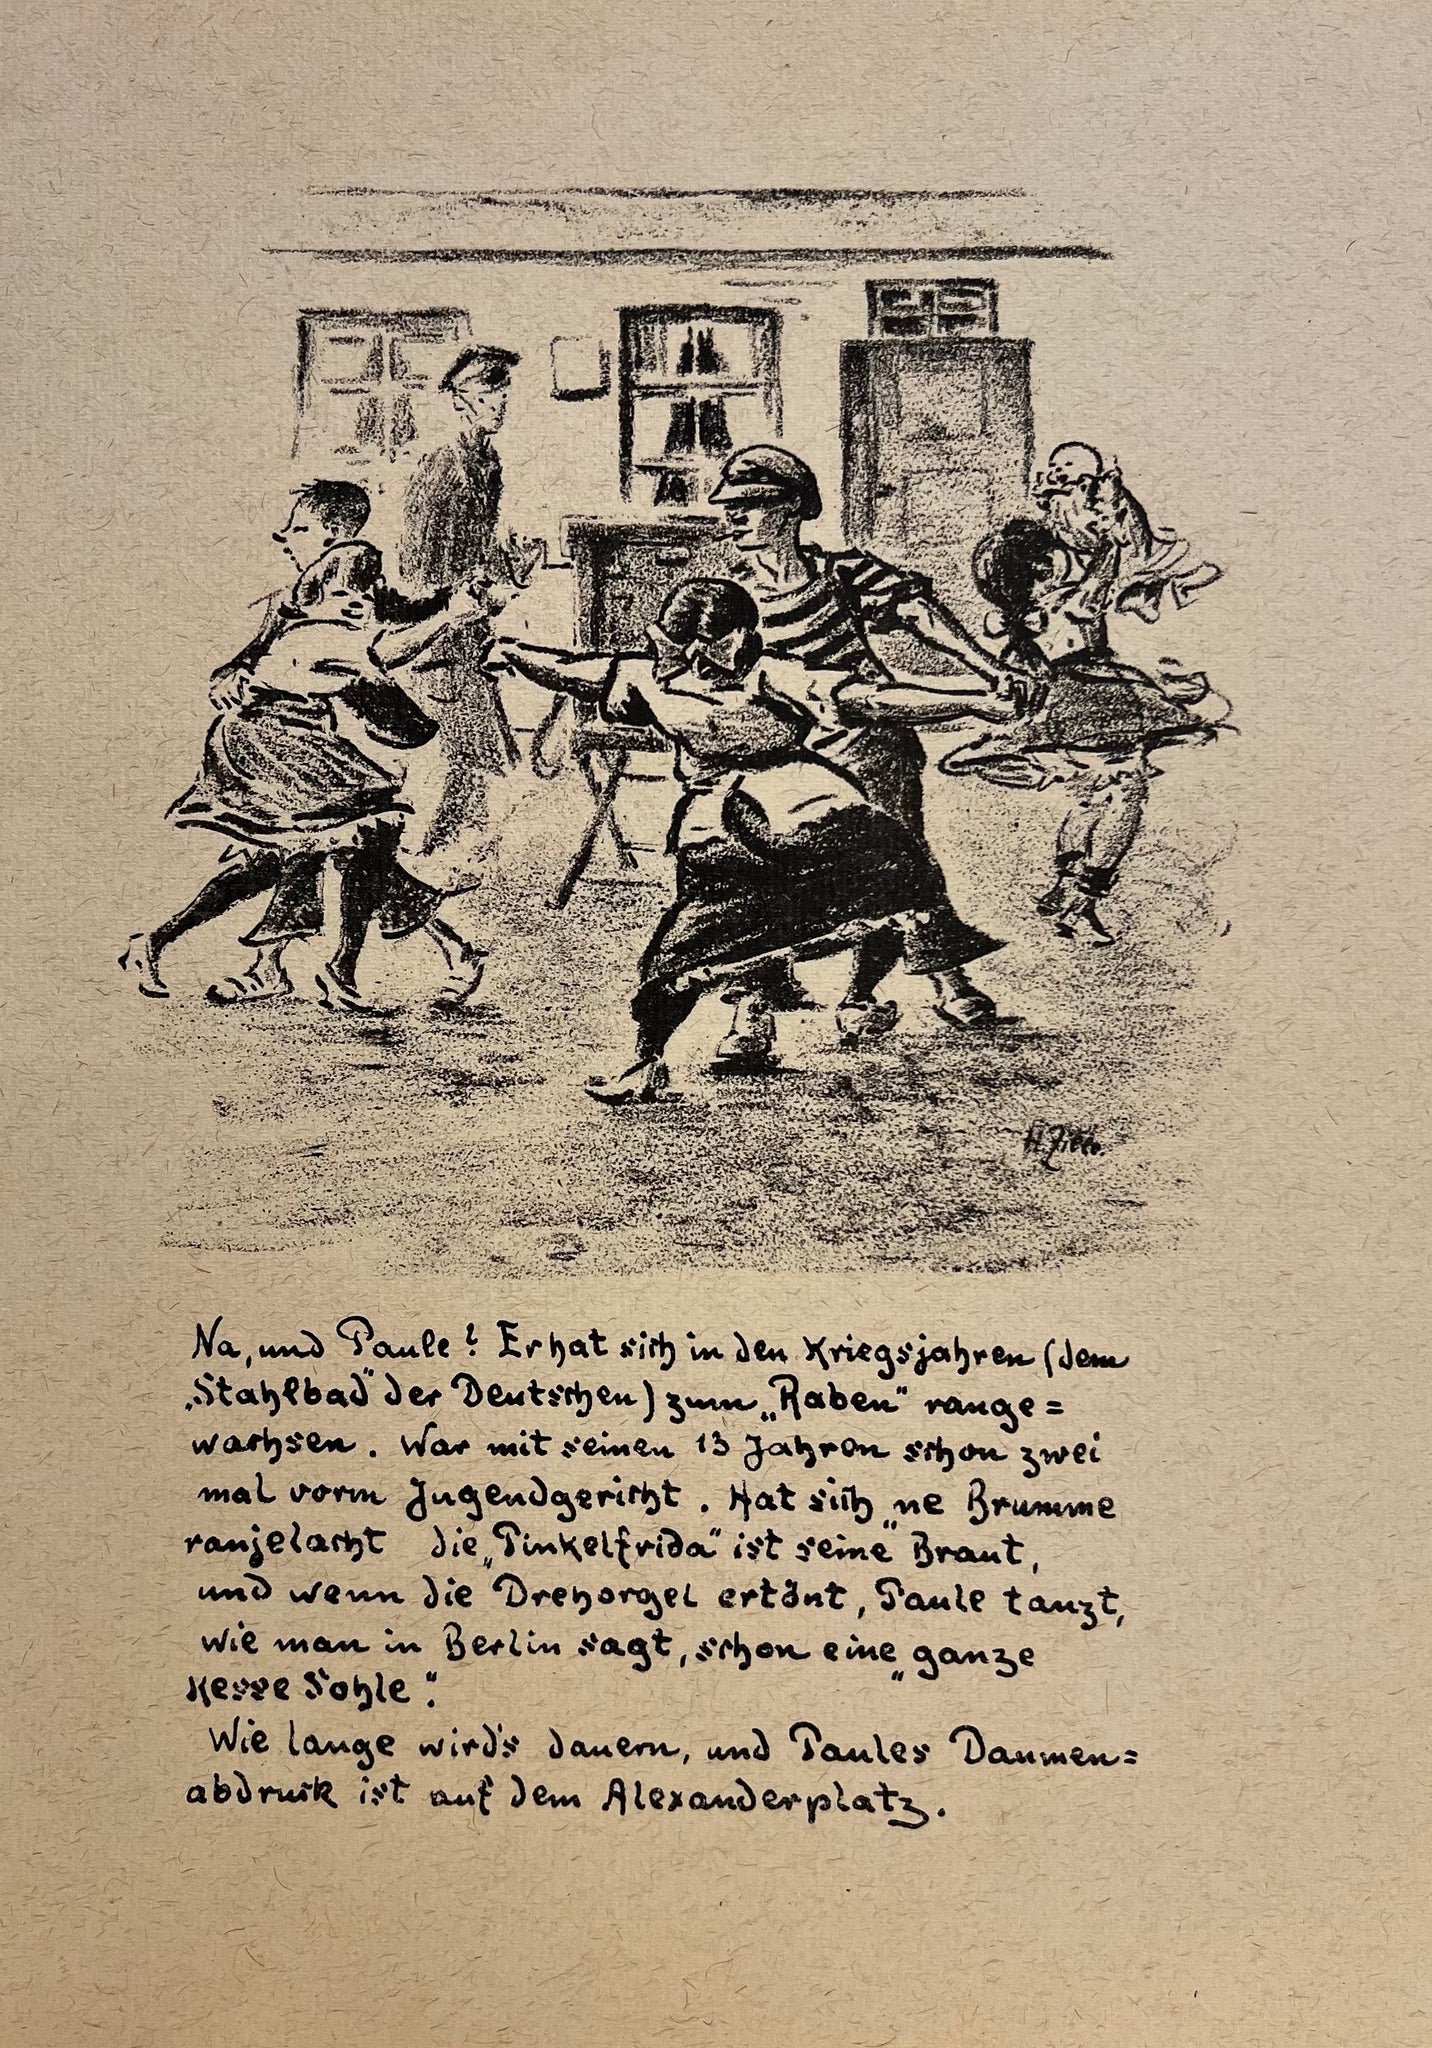 H. Zille.
Na, und Paule? Er hat sich in den Kriegsjahren (dem
„Stahlbad" der Deutschen) zum „Raben" range=
wachsen. War mit seinen 13 Jahren schon zwei
mal vorm Jugendgericht. Hat sich „ne Brumme
ranjelacht die „Pinkelfrida" ist seine" Braut,
und wenn die Drehorgel ertönt, Paule tanzt,
wie man in Berlin sagt, schon eine „ganze
kesse Sohle".
Wie lange wird's dauern, und Paules Daumen=
abdruck ist auf dem Alexanderplatz.